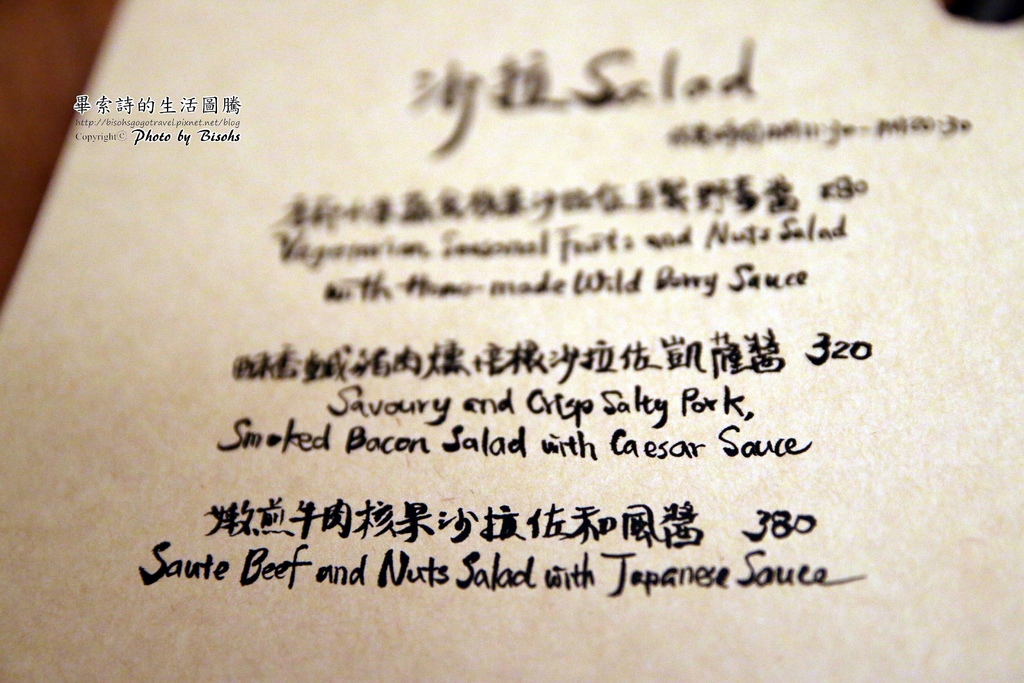 畢索詩的生活圖騰
http://bisohsgogotravel.pixnet.net/blog
Copyright© Photo by Bisohs
沙拉 Salad
Seasonal Fruits and Nuts Salad
with Home-made Wild Berry Sauce
鹹豬肉燻培根沙拉佐凱薩醬 320
Savoury and Crisp Salty Pork,
Smoked Bacon Salad with Caesar Sauce
嫩煎牛肉核果沙拉佐和風醬 380
Saute Beef and Nuts Salad with Japanese Sauce